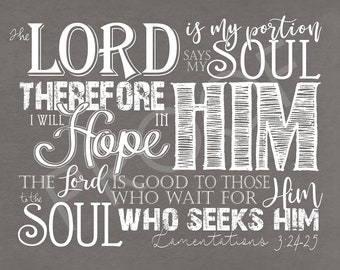 The LORD is my portion
SAYS MY SOUL
THEREFORE
I WILL Hope IN HIM
THE Lord IS GOOD TO THOSE
WHO WAIT FOR Him
to the SOUL WHO SEEKS HIM
Lamentations 3:24-25